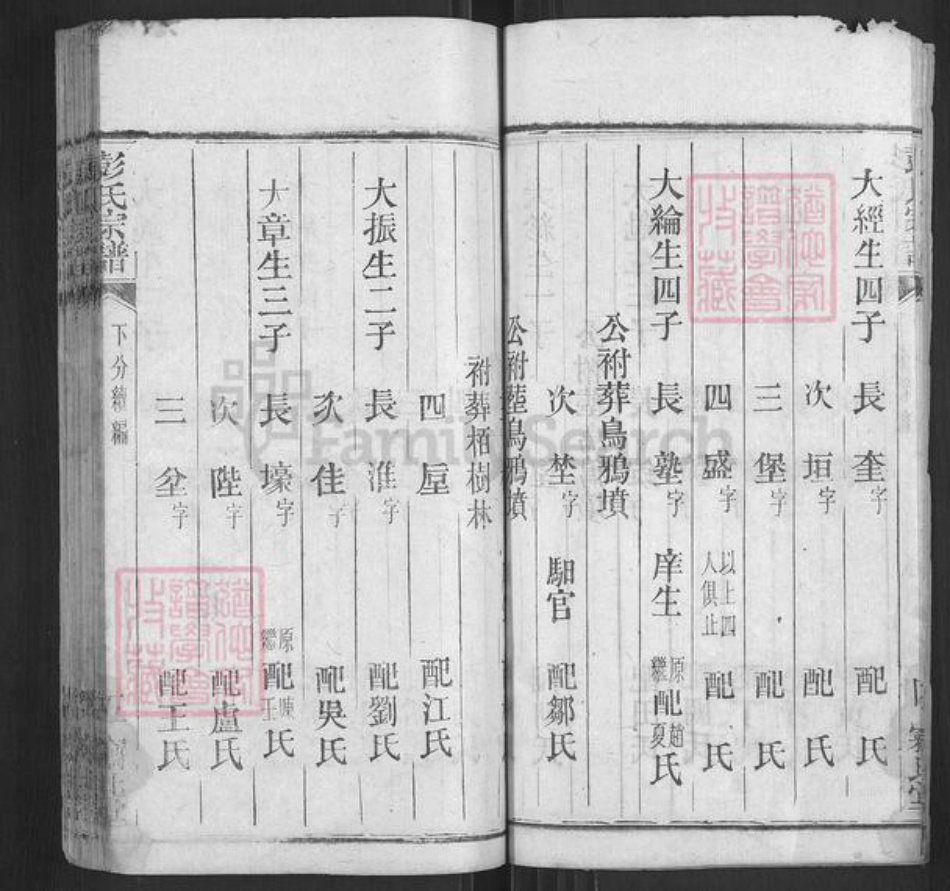 大經生四子　長奎字　配　氏
次垣字　配　氏
三堡字　配　氏
四盛字　以上四人俱止　配　氏
大綸生四子　長塾字　庠生　原繼配趙夏氏
公祔葬烏鴉墳
次埜字　馹官　配鄒氏
公祔塟烏鴉墳
祔葬栢樹林
四垕　配江氏
大振生二子　長淮字　配劉氏
次佳字　配吳氏
大章生三子　長壕字　原繼配陳王氏
次陛字　配盧氏
三坌字　配王氏
彭氏宗譜　下分續編
FamilySearch